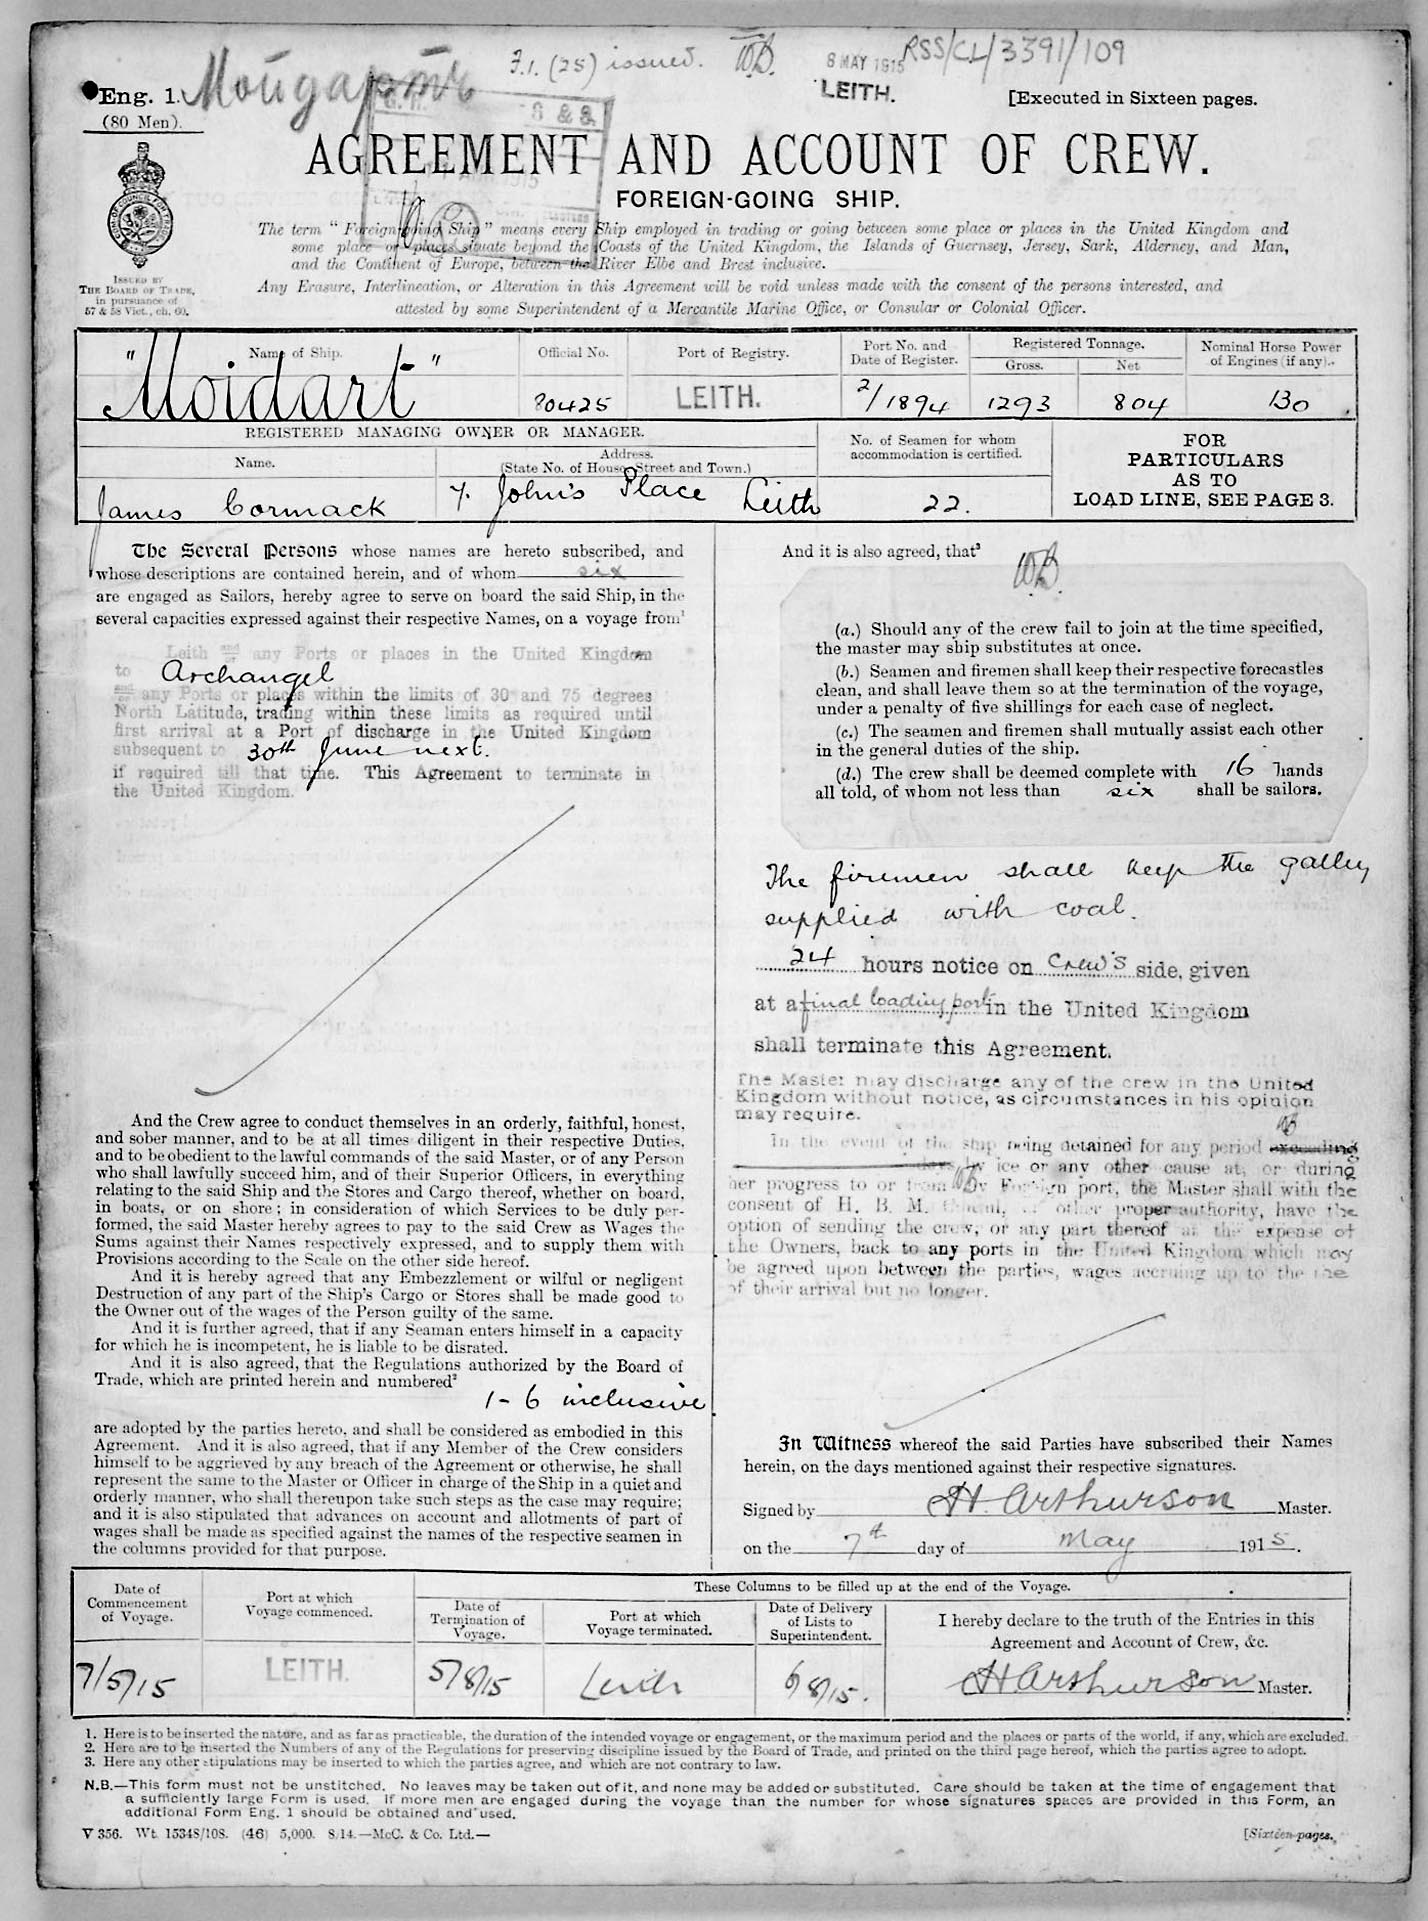 F.1. (25) issued. WB.
8 MAY 1915
LEITH.
RSS/CL/3391/109
Eng. 1.
(80 Men).
[Executed in Sixteen pages.
AGREEMENT AND ACCOUNT OF CREW.
FOREIGN-GOING SHIP.
The term "Foreign-going Ship" means every Ship employed in trading or going between some place or places in the United Kingdom and
some place or places situate beyond the Coasts of the United Kingdom, the Islands of Guernsey, Jersey, Sark, Alderney, and Man,
and the Continent of Europe, between the River Elbe and Brest inclusive.
Any Erasure, Interlineation, or Alteration in this Agreement will be void unless made with the consent of the persons interested, and
attested by some Superintendent of a Mercantile Marine Office, or Consular or Colonial Officer.
ISSUED BY
THE BOARD OF TRADE,
in pursuance of
57 & 58 Vict., ch. 60.
Name of Ship. Official No. Port of Registry. Port No. and Date of Register. Registered Tonnage. Gross. Net. Nominal Horse Power of Engines (if any).
"Moidart" 80425 LEITH. 2/1894 1293 804 130
REGISTERED MANAGING OWNER OR MANAGER.
Name. Address. (State No. of House, Street and Town.) No. of Seamen for whom accommodation is certified.
James Cormack 7. John's Place Leith 22.
FOR
PARTICULARS
AS TO
LOAD LINE, SEE PAGE 3.
The Several Persons whose names are hereto subscribed, and
whose descriptions are contained herein, and of whom six
are engaged as Sailors, hereby agree to serve on board the said Ship, in the
several capacities expressed against their respective Names, on a voyage from¹
Leith and/or any Ports or places in the United Kingdom
to Archangel
and/or any Ports or places within the limits of 30 and 75 degrees
North Latitude, trading within these limits as required until
first arrival at a Port of discharge in the United Kingdom
subsequent to 30th June next.
if required till that time. This Agreement to terminate in
the United Kingdom.
And the Crew agree to conduct themselves in an orderly, faithful, honest,
and sober manner, and to be at all times diligent in their respective Duties,
and to be obedient to the lawful commands of the said Master, or of any Person
who shall lawfully succeed him, and of their Superior Officers, in everything
relating to the said Ship and the Stores and Cargo thereof, whether on board,
in boats, or on shore; in consideration of which Services to be duly per-
formed, the said Master hereby agrees to pay to the said Crew as Wages the
Sums against their Names respectively expressed, and to supply them with
Provisions according to the Scale on the other side hereof.
And it is hereby agreed that any Embezzlement or wilful or negligent
Destruction of any part of the Ship's Cargo or Stores shall be made good to
the Owner out of the wages of the Person guilty of the same.
And it is further agreed, that if any Seaman enters himself in a capacity
for which he is incompetent, he is liable to be disrated.
And it is also agreed, that the Regulations authorized by the Board of
Trade, which are printed herein and numbered²
1-6 inclusive
are adopted by the parties hereto, and shall be considered as embodied in this
Agreement. And it is also agreed, that if any Member of the Crew considers
himself to be aggrieved by any breach of the Agreement or otherwise, he shall
represent the same to the Master or Officer in charge of the Ship in a quiet and
orderly manner, who shall thereupon take such steps as the case may require;
and it is also stipulated that advances on account and allotments of part of
wages shall be made as specified against the names of the respective seamen in
the columns provided for that purpose.
And it is also agreed, that³
WB.
(a.) Should any of the crew fail to join at the time specified,
the master may ship substitutes at once.
(b.) Seamen and firemen shall keep their respective forecastles
clean, and shall leave them so at the termination of the voyage,
under a penalty of five shillings for each case of neglect.
(c.) The seamen and firemen shall mutually assist each other
in the general duties of the ship.
(d.) The crew shall be deemed complete with 16 hands
all told, of whom not less than six shall be sailors.
The firemen shall keep the galley
supplied with coal.
24 hours notice on crew's side, given
at a final loading port in the United Kingdom
shall terminate this Agreement.
The Master may discharge any of the crew in the United
Kingdom without notice, as circumstances in his opinion
may require.
In the event of the ship being detained for any period exceeding
days by ice or any other cause at, or during
her progress to or from any Foreign port, the Master shall with the
consent of H. B. M. Consul, or other proper authority, have the
option of sending the crew, or any part thereof at the expense of
the Owners, back to any ports in the United Kingdom which may
be agreed upon between the parties, wages accruing up to the
of their arrival but no longer.
In Witness whereof the said Parties have subscribed their Names
herein, on the days mentioned against their respective signatures.
Signed by H. Arthurson Master.
on the 7th day of May 1915.
Date of Commencement of Voyage. Port at which Voyage commenced. These Columns to be filled up at the end of the Voyage.
Date of Termination of Voyage. Port at which Voyage terminated. Date of Delivery of Lists to Superintendent. I hereby declare to the truth of the Entries in this Agreement and Account of Crew, &c.
7/5/15 LEITH. 5/8/15 Leith 6/8/15. H. Arthurson Master.
1. Here is to be inserted the nature, and as far as practicable, the duration of the intended voyage or engagement, or the maximum period and the places or parts of the world, if any, which are excluded.
2. Here are to be inserted the Numbers of any of the Regulations for preserving discipline issued by the Board of Trade, and printed on the third page hereof, which the parties agree to adopt.
3. Here any other stipulations may be inserted to which the parties agree, and which are not contrary to law.
N.B.—This form must not be unstitched. No leaves may be taken out of it, and none may be added or substituted. Care should be taken at the time of engagement that
a sufficiently large Form is used. If more men are engaged during the voyage than the number for whose signatures spaces are provided in this Form, an
additional Form Eng. 1 should be obtained and used.
V 356. Wt. 15348/108. (46) 5,000. 8/14.—McC. & Co. Ltd.—
[Sixteen pages.